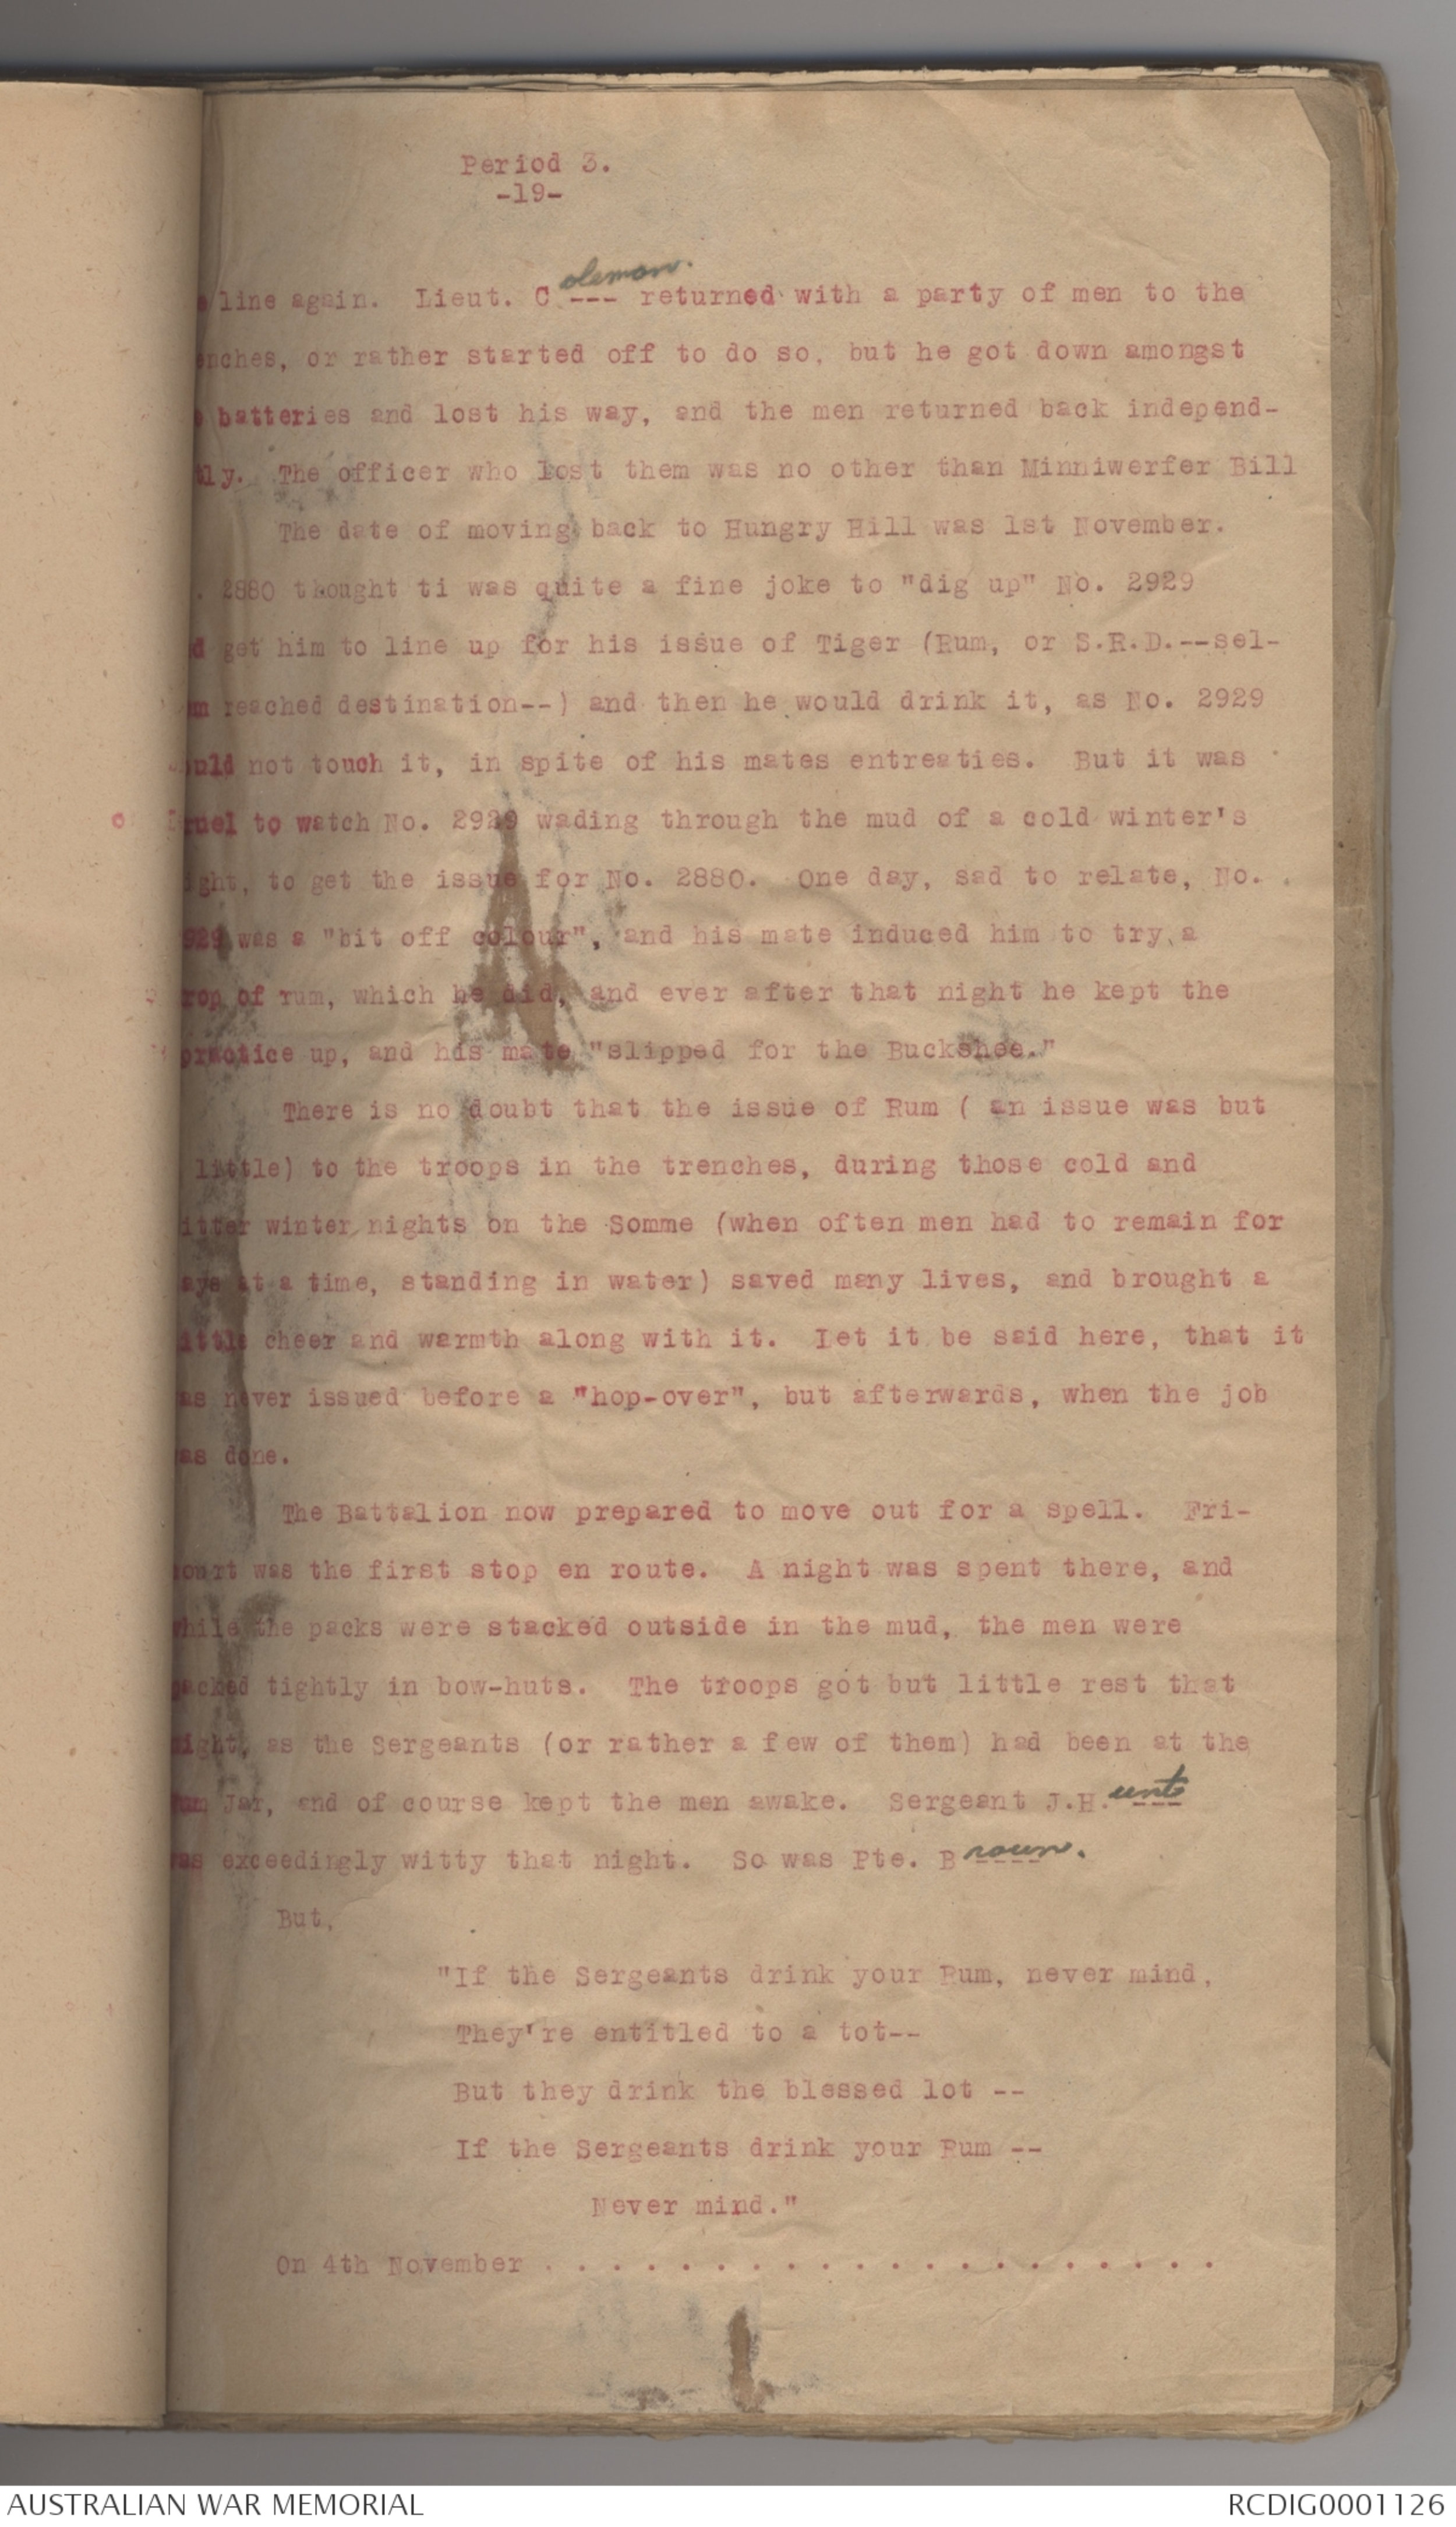 Period 3.
-19-
line again. Lieut. C oleman. --- returned with a party of men to the
enches, or rather started off to do so, but he got down amongst
batteries and lost his way, and the men returned back independ-
tly. The officer who lost them was no other than Minniwerfer Bill
The date of moving back to Hungry Hill was 1st November.
. 2880 thought ti was quite a fine joke to "dig up" No. 2929
d get him to line up for his issue of Tiger (Rum, or S.R.D.--sel-
m reached destination--) and then he would drink it, as No. 2929
ould not touch it, in spite of his mates entreaties. But it was
ruel to watch No. 2929 wading through the mud of a cold winter's
ight, to get the issue for No. 2880. One day, sad to relate, No.
929 was a "bit off colour", and his mate induced him to try a
rop of rum, which he did, and ever after that night he kept the
practice up, and his mate "slipped for the Buckshee."
There is no doubt that the issue of Rum ( an issue was but
little) to the troops in the trenches, during those cold and
itter winter nights on the Somme (when often men had to remain for
ays at a time, standing in water) saved many lives, and brought a
ittle cheer and warmth along with it. Let it be said here, that it
as never issued before a "hop-over", but afterwards, when the job
as done.
The Battalion now prepared to move out for a spell. Fri-
court was the first stop en route. A night was spent there, and
while the packs were stacked outside in the mud, the men were
packed tightly in bow-huts. The troops got but little rest that
night, as the Sergeants (or rather a few of them) had been at the
Rum Jar, and of course kept the men awake. Sergeant J.H. unts
was exceedingly witty that night. So was Pte. B rown.
But,
"If the Sergeants drink your Rum, never mind,
They're entitled to a tot--
But they drink the blessed lot --
If the Sergeants drink your Rum --
Never mind."
On 4th November . . . . . . . . . . . . . . . . . . . .
AUSTRALIAN WAR MEMORIAL
RCDIG0001126